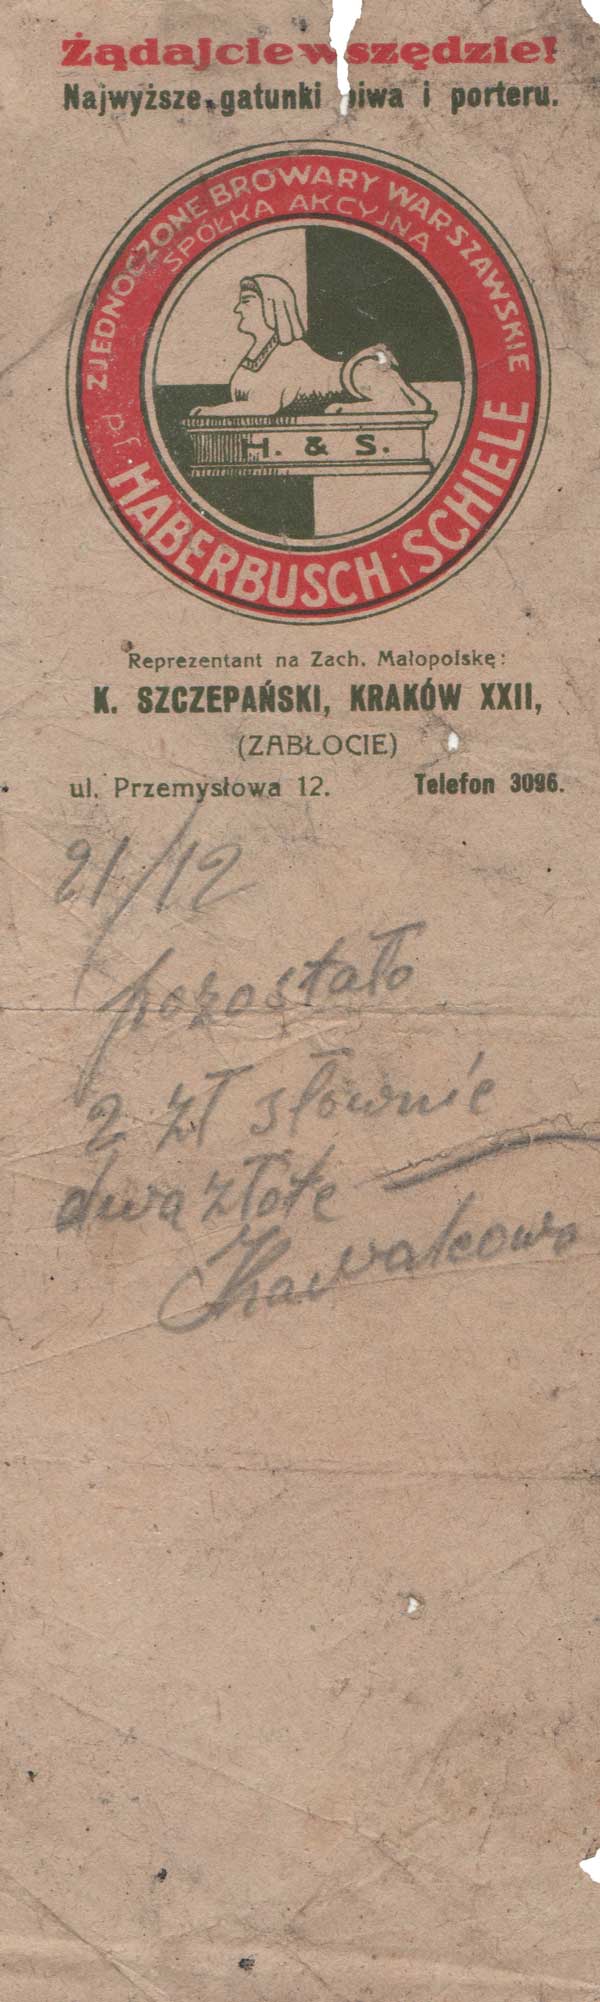 Żądajcie wszędzie!
Najwyższe gatunki piwa i porteru.
ZJEDNOCZONE BROWARY WARSZAWSKIE
SPÓŁKA AKCYJNA
H. & S.
HABERBUSCH i SCHIELE
Reprezentant na Zach. Małopolskę:
K. SZCZEPAŃSKI, KRAKÓW XXII,
(ZABŁOCIE)
ul. Przemysłowa 12. Telefon 3096.
21/12
pozostało
2 zł słownie
dwa złote